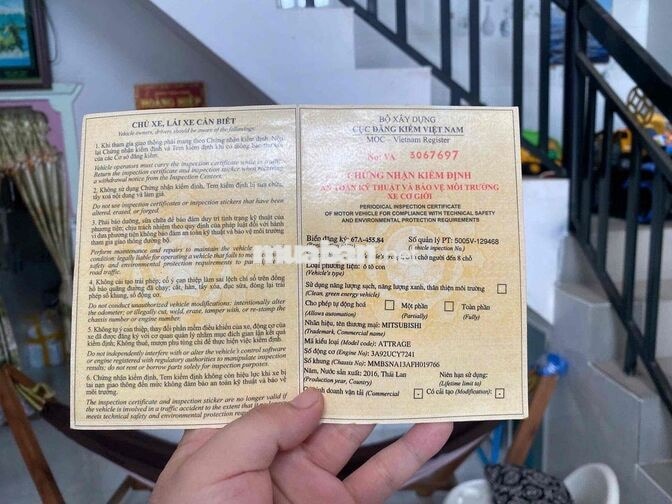 CHỦ XE, LÁI XE CẦN BIẾT
Vehicle owners, drivers should be aware of the followings:
1. Khi tham gia giao thông phải mang theo Chứng nhận kiểm định. Nộp lại Chứng nhận kiểm định, Tem kiểm định khi có thông báo thu hồi của các Cơ sở đăng kiểm.
Vehicle operators must carry the inspection certificate while in traffic. Return the inspection certificate and inspection sticker when receiving a withdrawal notice from the Inspection Centers.
2. Không sử dụng Chứng nhận kiểm định, Tem kiểm định bị sửa chữa, tẩy xoá nội dung và làm giả.
Do not use inspection certificates or inspection stickers that have been altered, erased, or forged.
3. Phải bảo dưỡng, sửa chữa để bảo đảm duy trì tình trạng kỹ thuật của phương tiện; chịu trách nhiệm theo quy định của pháp luật đối với hành vi đưa phương tiện không bảo đảm an toàn kỹ thuật và bảo vệ môi trường tham gia giao thông đường bộ.
Perform maintenance and repairs to maintain the vehicle's condition; legally liable for operating a vehicle that fails to meet safety and environmental protection requirements to participate in road traffic.
4. Không cải tạo trái phép; cố ý can thiệp làm sai lệch chỉ số trên đồng hồ báo quãng đường đã chạy; cắt, hàn, tẩy xóa, đục sửa, đóng lại trái phép số khung, số động cơ.
Do not conduct unauthorized vehicle modifications; intentionally alter the odometer; or illegally cut, weld, erase, tamper with, or re-stamp the chassis number or engine number.
5. Không tự ý can thiệp, thay đổi phần mềm điều khiển của xe, động cơ của xe đã được đăng ký với cơ quan quản lý nhằm mục đích gian lận kết quả kiểm định; Không thuê, mượn phụ tùng chỉ để thực hiện việc kiểm định.
Do not independently interfere with or alter the vehicle's control software or engine registered with regulatory authorities to manipulate inspection results; do not rent or borrow parts solely for inspection purposes.
6. Chứng nhận kiểm định, Tem kiểm định không còn hiệu lực khi xe bị tai nạn giao thông đến mức không đảm bảo an toàn kỹ thuật và bảo vệ môi trường.
The inspection certificate and inspection sticker are no longer valid if the vehicle is involved in a traffic accident to the extent that it no longer meets technical safety and environmental protection requirements.
BỘ XÂY DỰNG
CỤC ĐĂNG KIỂM VIỆT NAM
MOC - Vietnam Register
No: VA 5067697
CHỨNG NHẬN KIỂM ĐỊNH
AN TOÀN KỸ THUẬT VÀ BẢO VỆ MÔI TRƯỜNG
XE CƠ GIỚI
PERIODICAL INSPECTION CERTIFICATE
OF MOTOR VEHICLE FOR COMPLIANCE WITH TECHNICAL SAFETY
AND ENVIRONMENTAL PROTECTION REQUIREMENTS
Biển đăng ký: 67A-455.84 Số quản lý PT: 5005V-129468
(Vehicle inspection No.)
chở người đến 8 chỗ
Loại phương tiện: ô tô con
(Vehicle's type)
Sử dụng năng lượng sạch, năng lượng xanh, thân thiện môi trường
(Clean, green energy vehicle)
Cho phép tự động hoá Một phần Toàn phần
(Allows automation) (Partially) (Fully)
Nhãn hiệu, tên thương mại: MITSUBISHI
(Trademark, Commercial name)
Mã kiểu loại (Model code): ATTRAGE
Số động cơ (Engine No): 3A92UCY7241
Số khung (Chassis No): MMBSNA13AFH019766
Năm, Nước sản xuất: 2016, Thái Lan Niên hạn sử dụng:
(Production year, Country) (Lifetime limit to)
Kinh doanh vận tải (Commercial Có cải tạo (Modification):
muaban